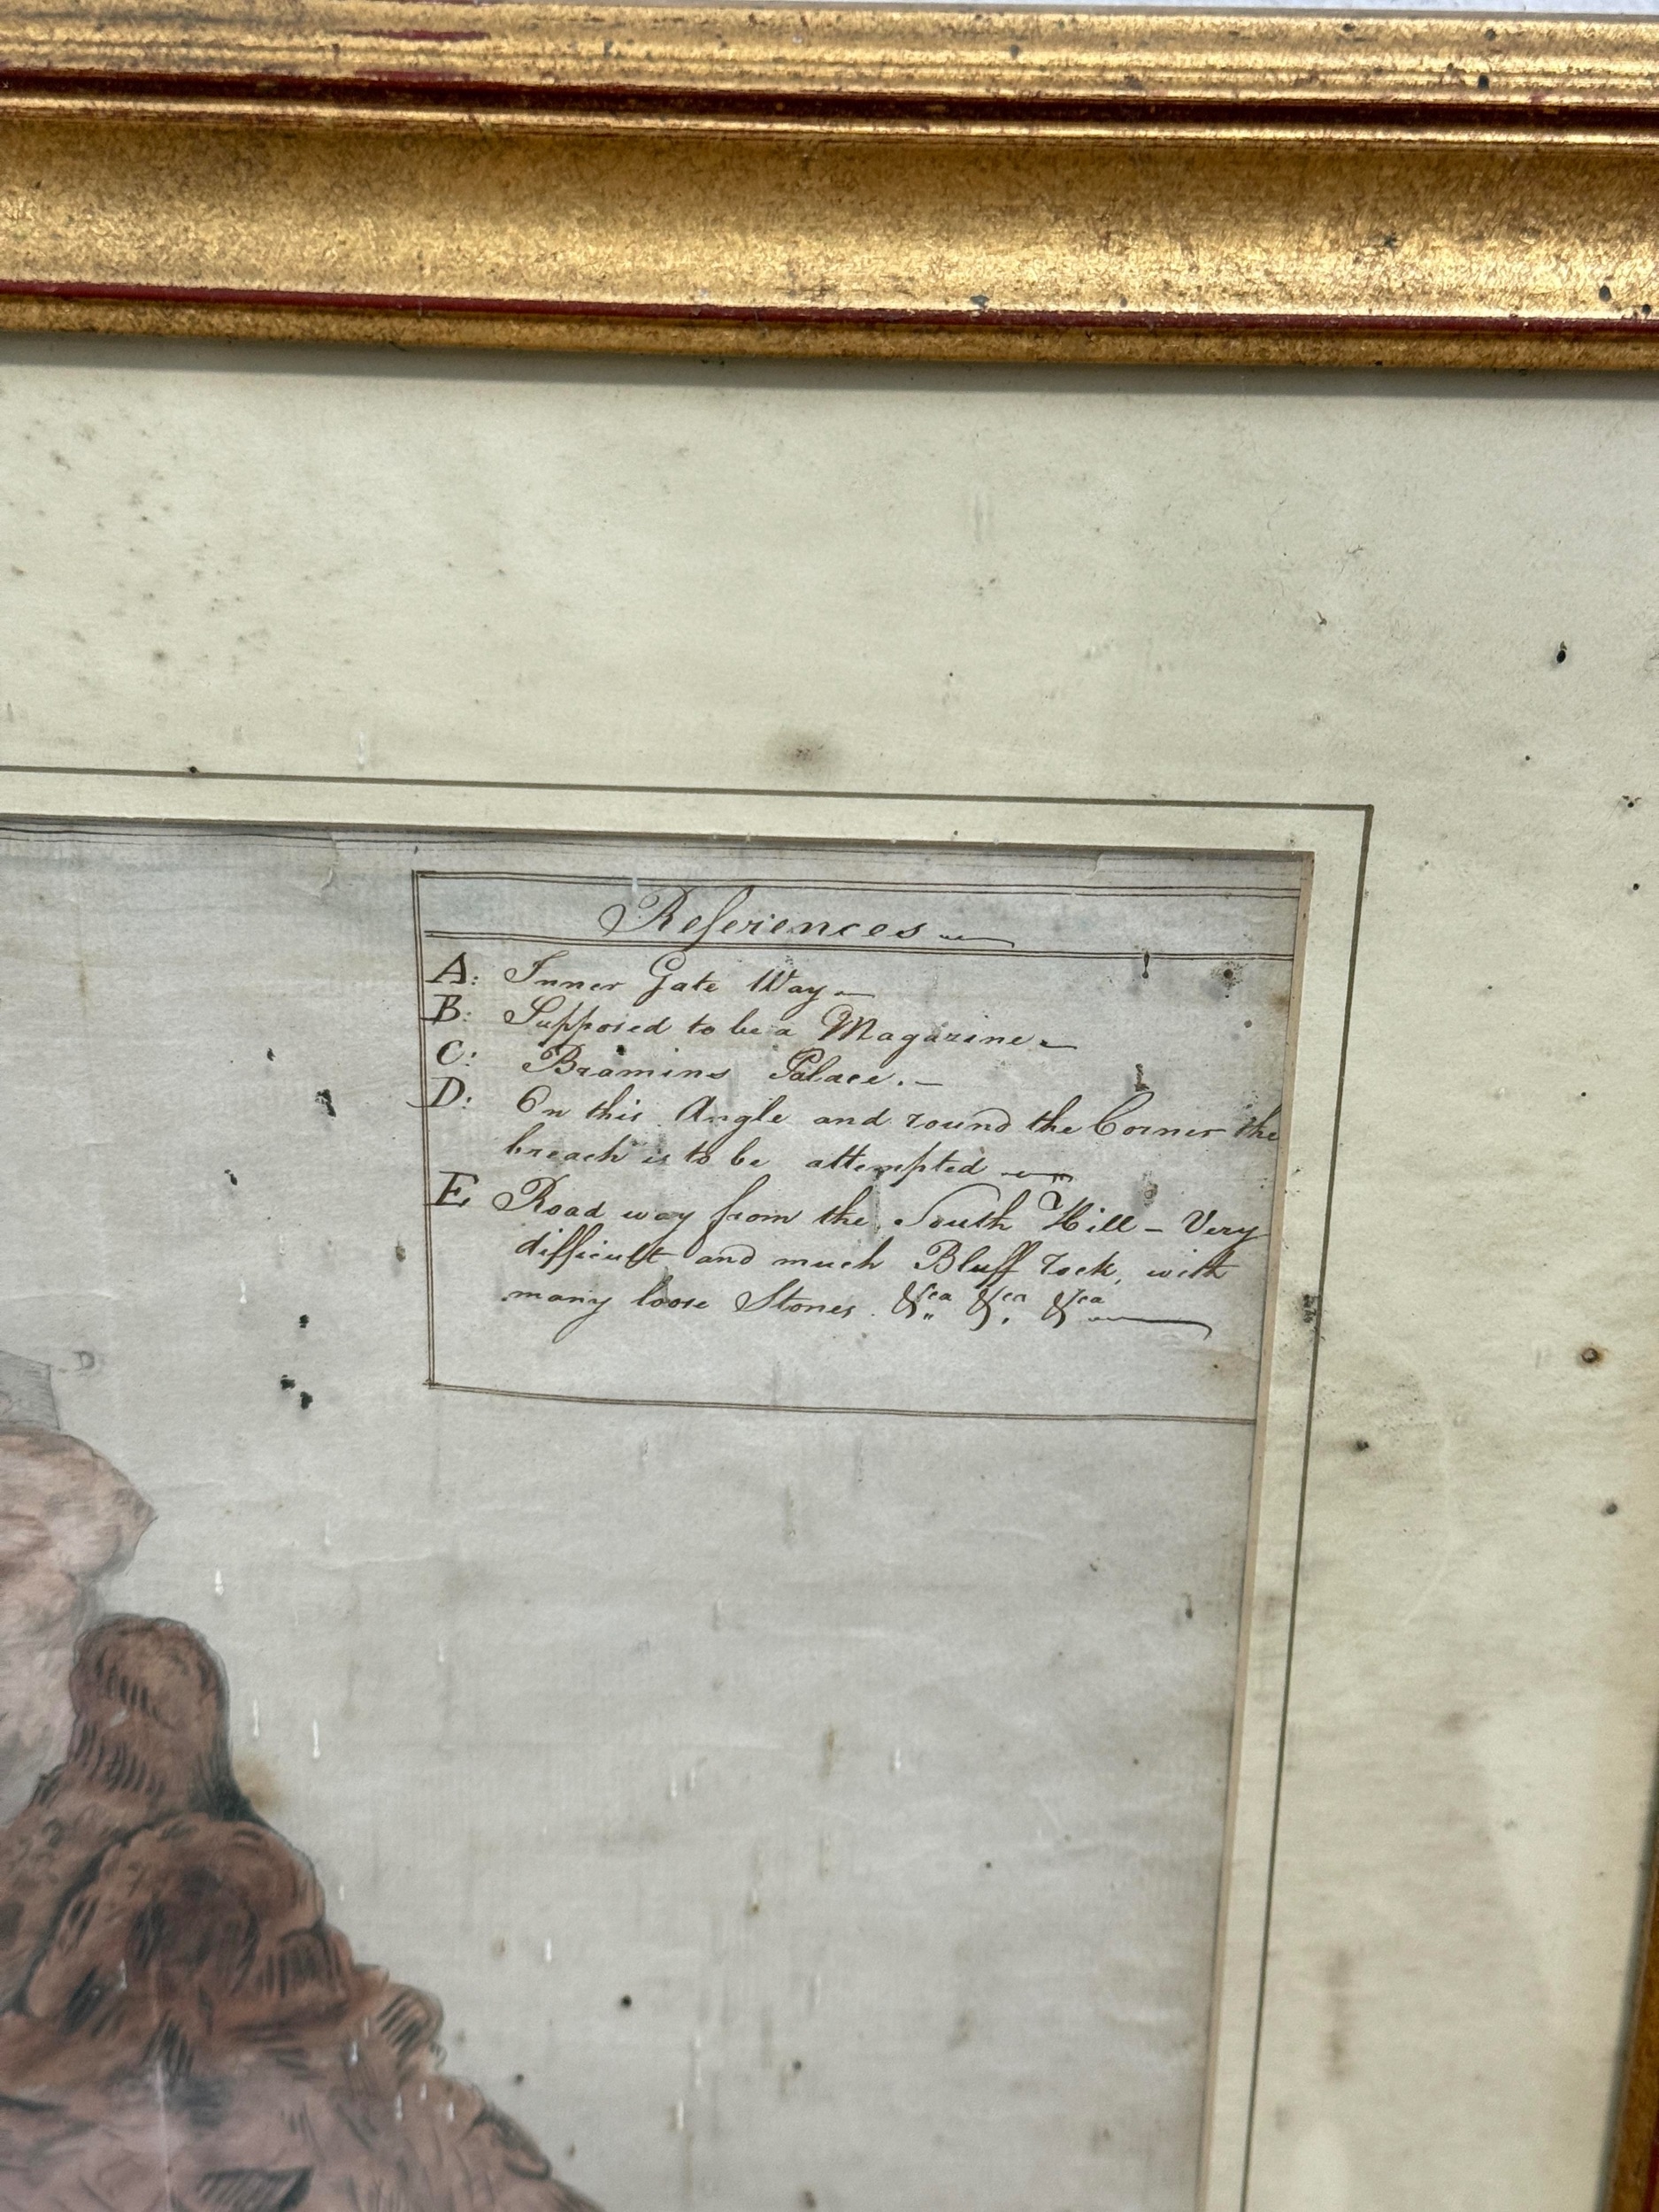 References
A: Inner Gate Way
B: Supposed to be a Magazine
C: Bramins Palace.
D: On this Angle and round the Corner the
breach is to be attempted
E Road way from the South Hill - Very
difficult and much Bluff rock, with
many loose Stones &ca &ca &ca
D